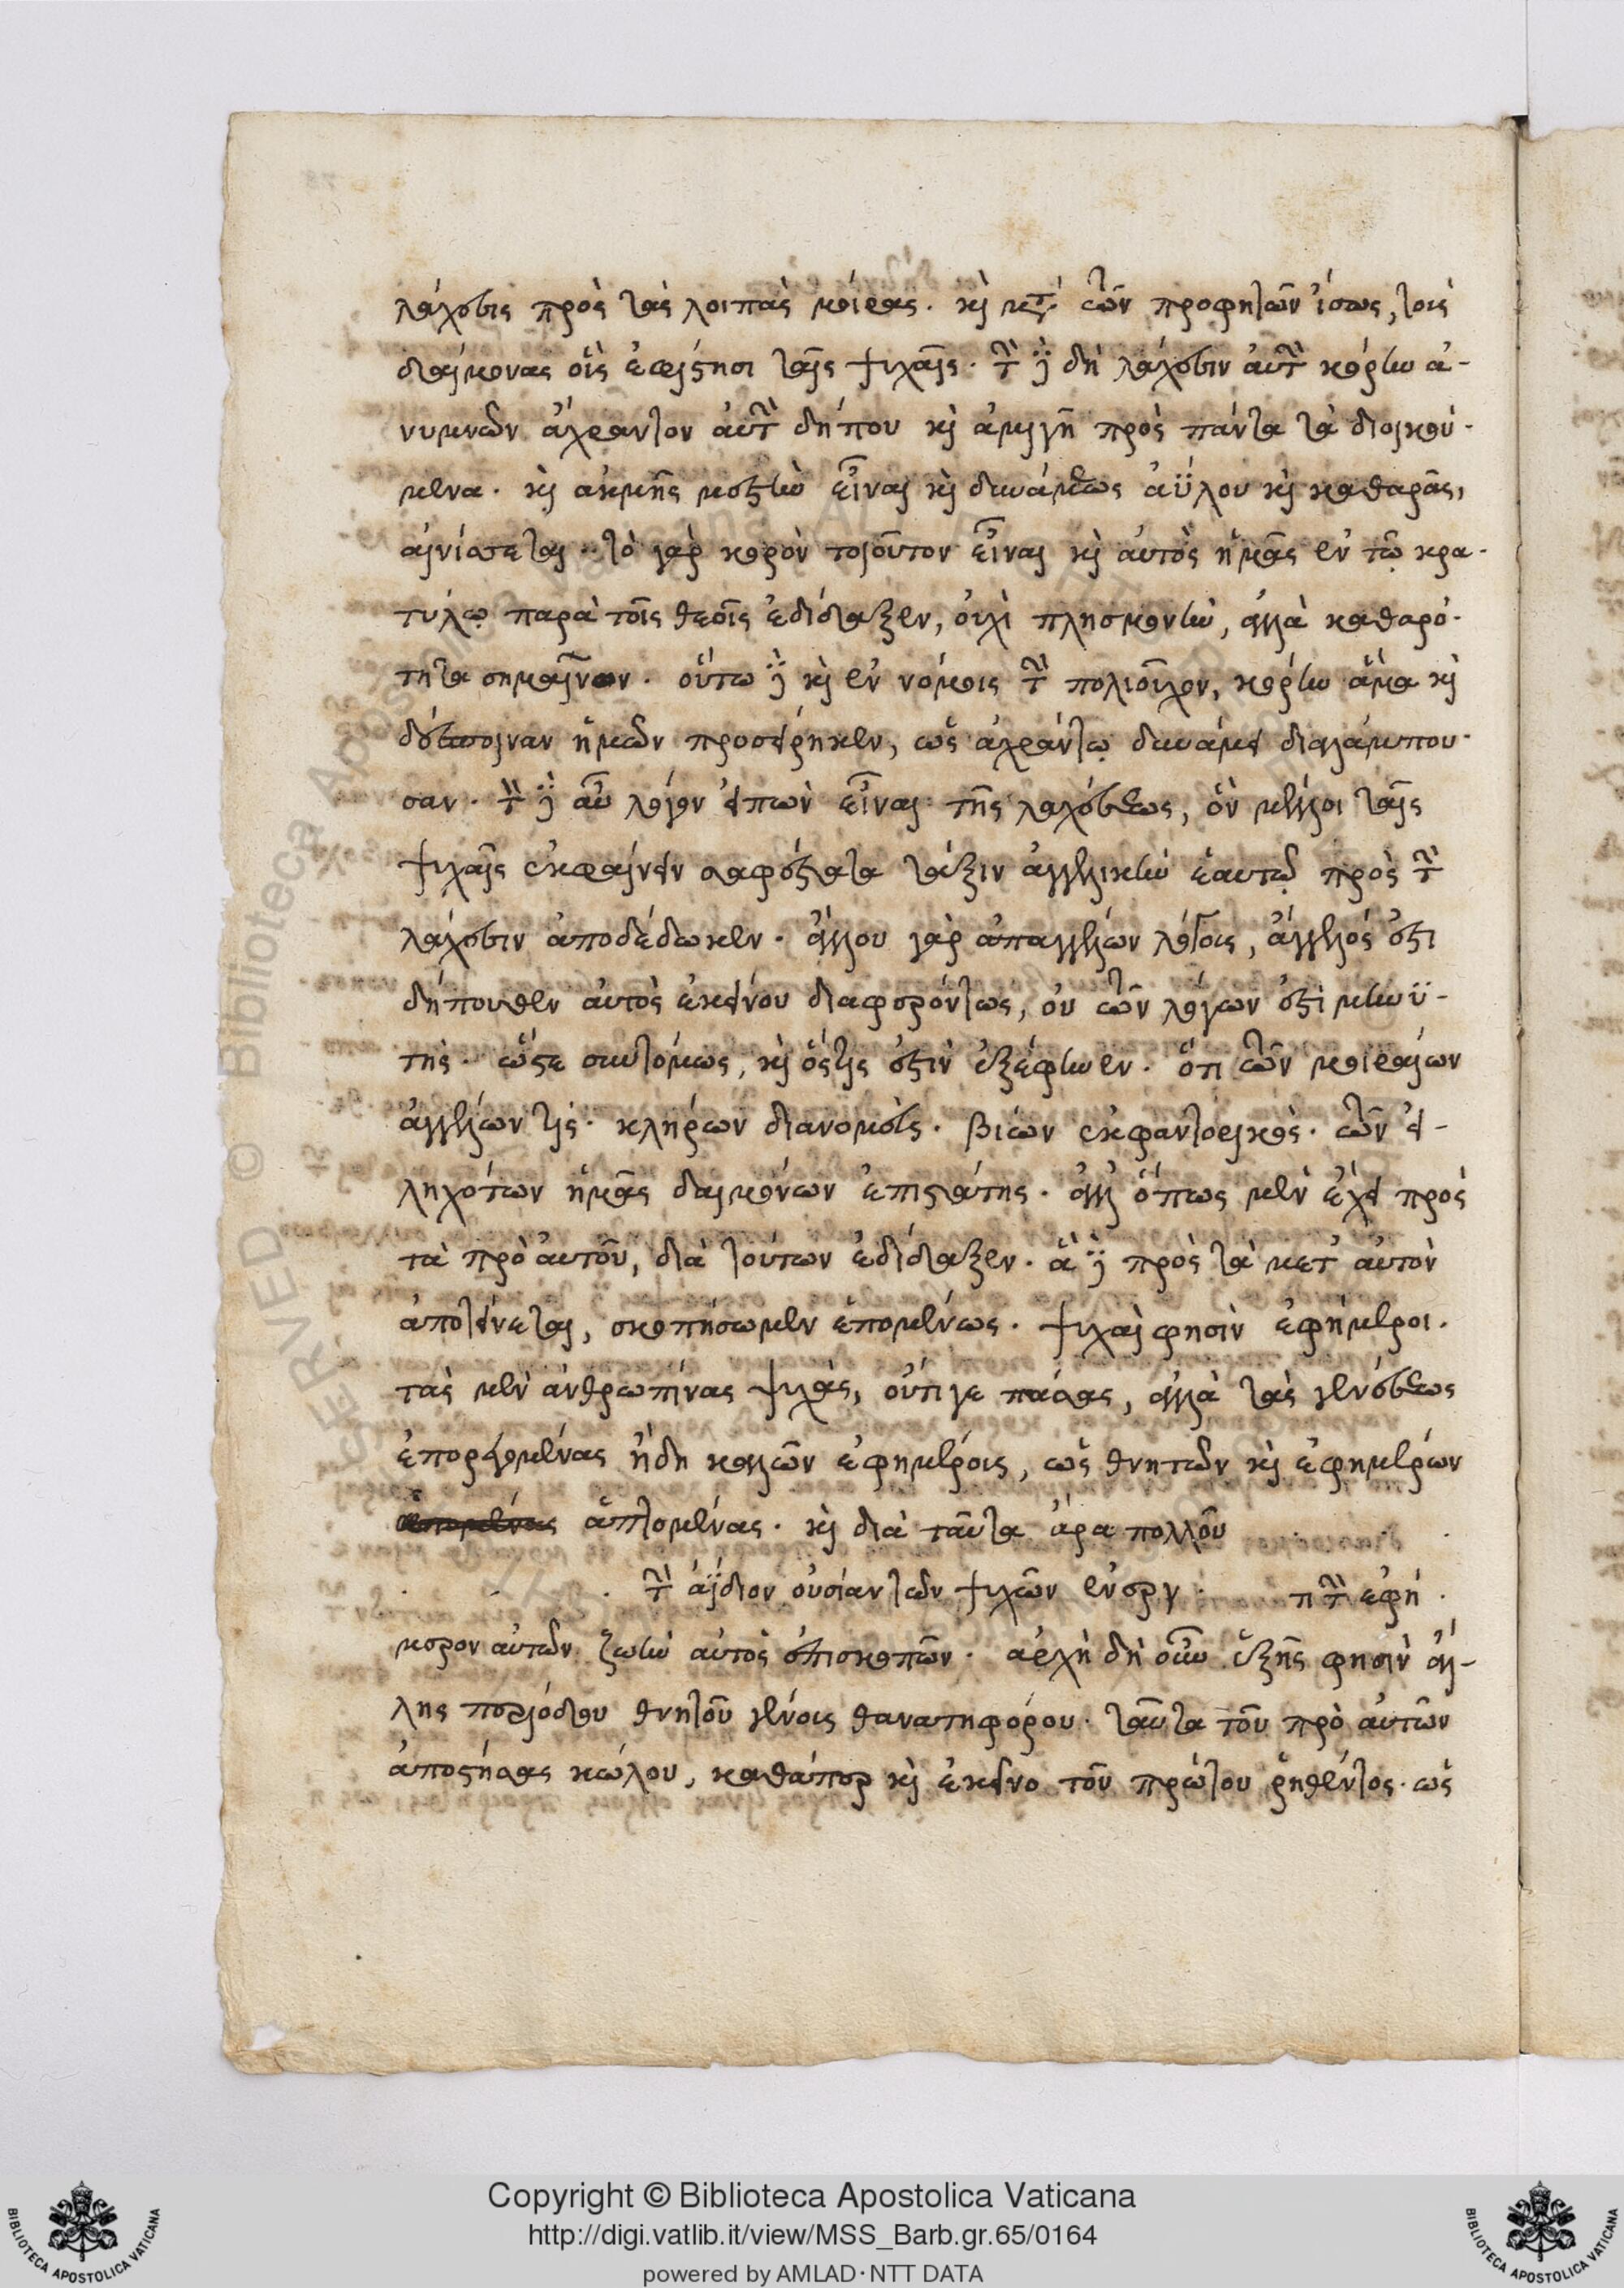 λάχεσις πρὸς τὰς λοιπὰς μοίρας. κὶ μετὰ τῶν προφητῶν ἴσως, τοὺς
δαίμονας οὓς ἐφίστησι ταῖς ψυχαῖς. τὴν δὲ δὴ λάχεσιν αὐτὴν κόρην ἀ-
νυμνῶν ἄχραντον αὐτὴν δήπου κὶ ἀμιγῆ πρὸς πάντα τὰ διοικού-
μενα. κὶ ἀκμῆς μεστὴν εἶναι κὶ δυνάμεως ἀΰλου κὶ καθαρᾶς,
αἰνίσσεται. τὸ γὰρ κορὸν τοιοῦτον εἶναι κὶ αὐτὸς ἡμᾶς ἐν τῷ κρα-
τύλῳ παρὰ τοῖς θεοῖς ἐδίδαξεν, οὐχὶ πλησμονὴν, ἀλλὰ καθαρό-
τητα σημαῖνον. οὕτω δὲ κὶ ἐν νόμοις τὴν πολιοῦχον, κόρην ἅμα κὶ
δέσποιναν ἡμῶν προσείρηκεν, ὡς ἀχράντῳ δυνάμει διαλάμπου-
σαν. τὸν δὲ αὖ λόγον εἰπὼν εἶναι τῆς λαχέσεως, ὃν μέλλοι ταῖς
ψυχαῖς ἐκφαίνειν σαφέστατα τάξιν ἀγγελικὴν ἑαυτῷ πρὸς τὴν
λάχεσιν ἀποδέδωκεν. ἄλλου γὰρ ἀπαγγέλων λόγους, ἄγγελός ἐστι
δήπουθεν αὐτὸς ἐκείνου διαφερόντως, οὗ τῶν λόγων ἐστὶ μηνυ-
τής. ὥστε συντόμως, κὶ ὅστις ἐστὶν ἐξέφηνεν. ὅτι τῶν μοιραίων
ἀγγέλων τίς. κλήρων διανομεύς. βίων ἐκφαντορικός. τῶν εἰ-
ληχότων ἡμᾶς δαιμόνων ἐπιστάτης. ἀλλ' ὅπως μὲν ἔχει πρὸς
τὰ πρὸ αὐτοῦ, διὰ τούτων ἐδίδαξεν. ἃ δὲ πρὸς τὰ μετ' αὐτὸν
ἀποτείνεται, σκοπήσωμεν ἑπομένως. ψυχαὶ φησὶν ἐφήμεροι.
τὰς μὲν ἀνθρωπίνας ψυχὰς, οὔτι γε πάσας, ἀλλὰ τὰς γενέσεως
ἐπορεγομένας ἤδη καλῶν ἐφημέρους, ὡς θνητῶν κὶ ἐφημέρων
ἁπτομένας. κὶ διὰ ταῦτα ἄρα πολλοῦ . . .
. . . τὴν ἀΐδιον οὐσίαν τῶν ψυχῶν ἐνεργ. π τὴν ἐφή.
μερον αὐτῶν ζωὴν αὐτὸς ἐπισκοπῶν. ἀρχὴ δὴ οὖν ἑξῆς φησὶν ἄλ-
λης περιόδου θνητοῦ γένους θανατηφόρου. ταῦτα τοῦ πρὸ αὐτῶν
ἀποστήσας κώλου, καθάπερ κὶ ἐκεῖνο τοῦ πρώτου ῥηθέντος. ὡς
Copyright © Biblioteca Apostolica Vaticana
http://digi.vatlib.it/view/MSS_Barb.gr.65/0164
powered by AMLAD·NTT DATA
BIBLIOTECA APOSTOLICA VATICANA
BIBLIOTECA APOSTOLICA VATICANA